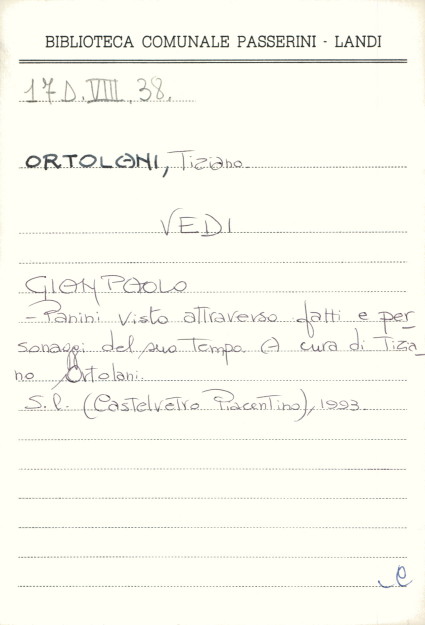 BIBLIOTECA COMUNALE PASSERINI - LANDI
17 D. VIII, 38.
ORTOLANI, Tiziano
VEDI
GIAN PAOLO
- Panini visto attraverso fatti e per-
sonaggi del suo tempo. A cura di Tizia-
no Ortolani.
S. l. (Castelvetro Piacentino), 1993